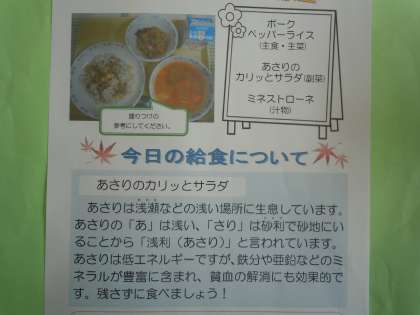 ポーク
ペッパーライス
(主食・主菜)
あさりの
カリッとサラダ(副菜)
ミネストローネ
(汁物)
盛りつけの
参考にしてください。
今日の給食について
あさりのカリッとサラダ
あさりは浅瀬などの浅い場所に生息しています。
あさりの「あ」は浅い、「さり」は砂利で砂地にい
ることから「浅利（あさり）」と言われています。
あさりは低エネルギーですが、鉄分や亜鉛などのミ
ネラルが豊富に含まれ、貧血の解消にも効果的で
す。残さずに食べましょう！